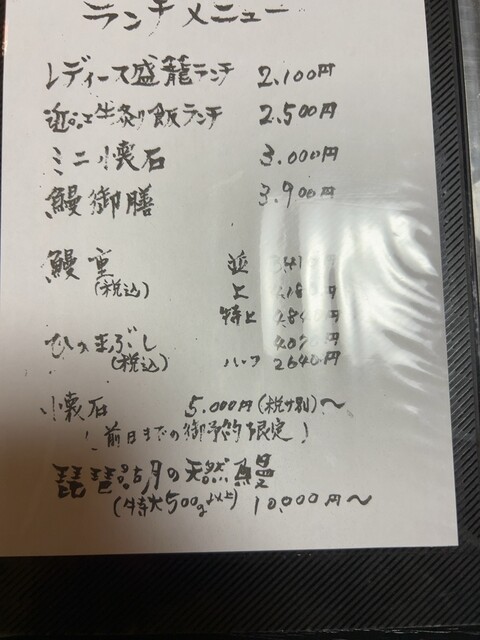 ランチメニュー
レディース盛籠ランチ 2.100円
近江牛炙り飯ランチ 2.500円
ミニ懐石 3.000円
鰻御膳 3.900円
鰻重 並
(税込) 上
特上
ひつまぶし
(税込) ハーフ 2640円
懐石 5.000円(税サ別)〜
(前日までの御予約限定)
琵琶湖の天然鰻
(特大500g以上) 10.000円〜